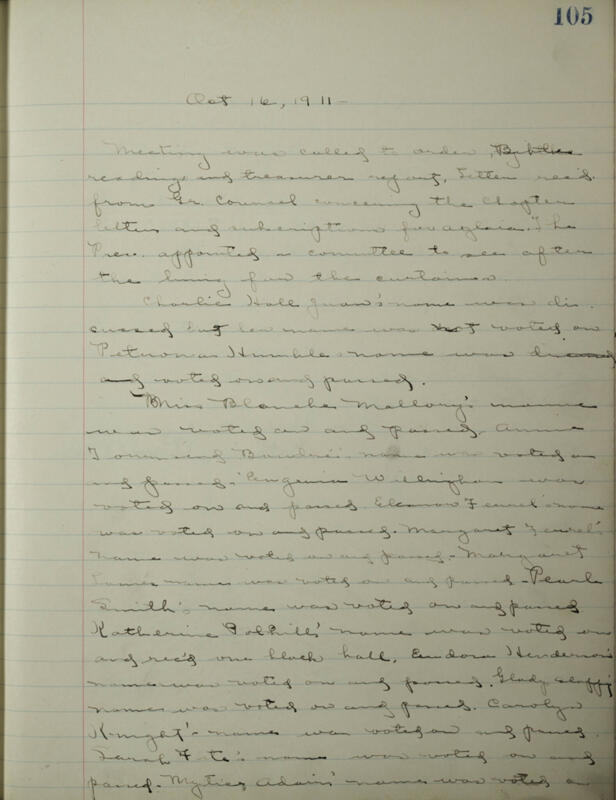 105
Oct 16, 1911-
Meeting was called to order,
reading and treasurer report. Letter rec'd
from Gr. Council concerning the Chapter
letter and subscription for aglaia. The
Pres. appointed a committee to see after
the lining for the curtains.
Charlie Hall name was dis
cussed but her name was not voted on
Petrona Humble name was
and voted on and passed.
Miss Blanche Mallory's name
was voted on and passed. Annie
name was voted on
and passed. Eugenia Willingham was
voted on and passed Eleanor name
was voted on and passed. Margaret
name was voted on and passed - Margaret
name was voted on and passed - Pearl
Smith's name was voted on and passed
Katherine Polhill's name was voted on
and rec'd one black ball. Eudora Henderson's
name was voted on and passed. Glady
name was voted on and passed. Carolyn
Knight's name was voted on and passed.
Sarah name was voted on and
passed. Adain' name was voted on